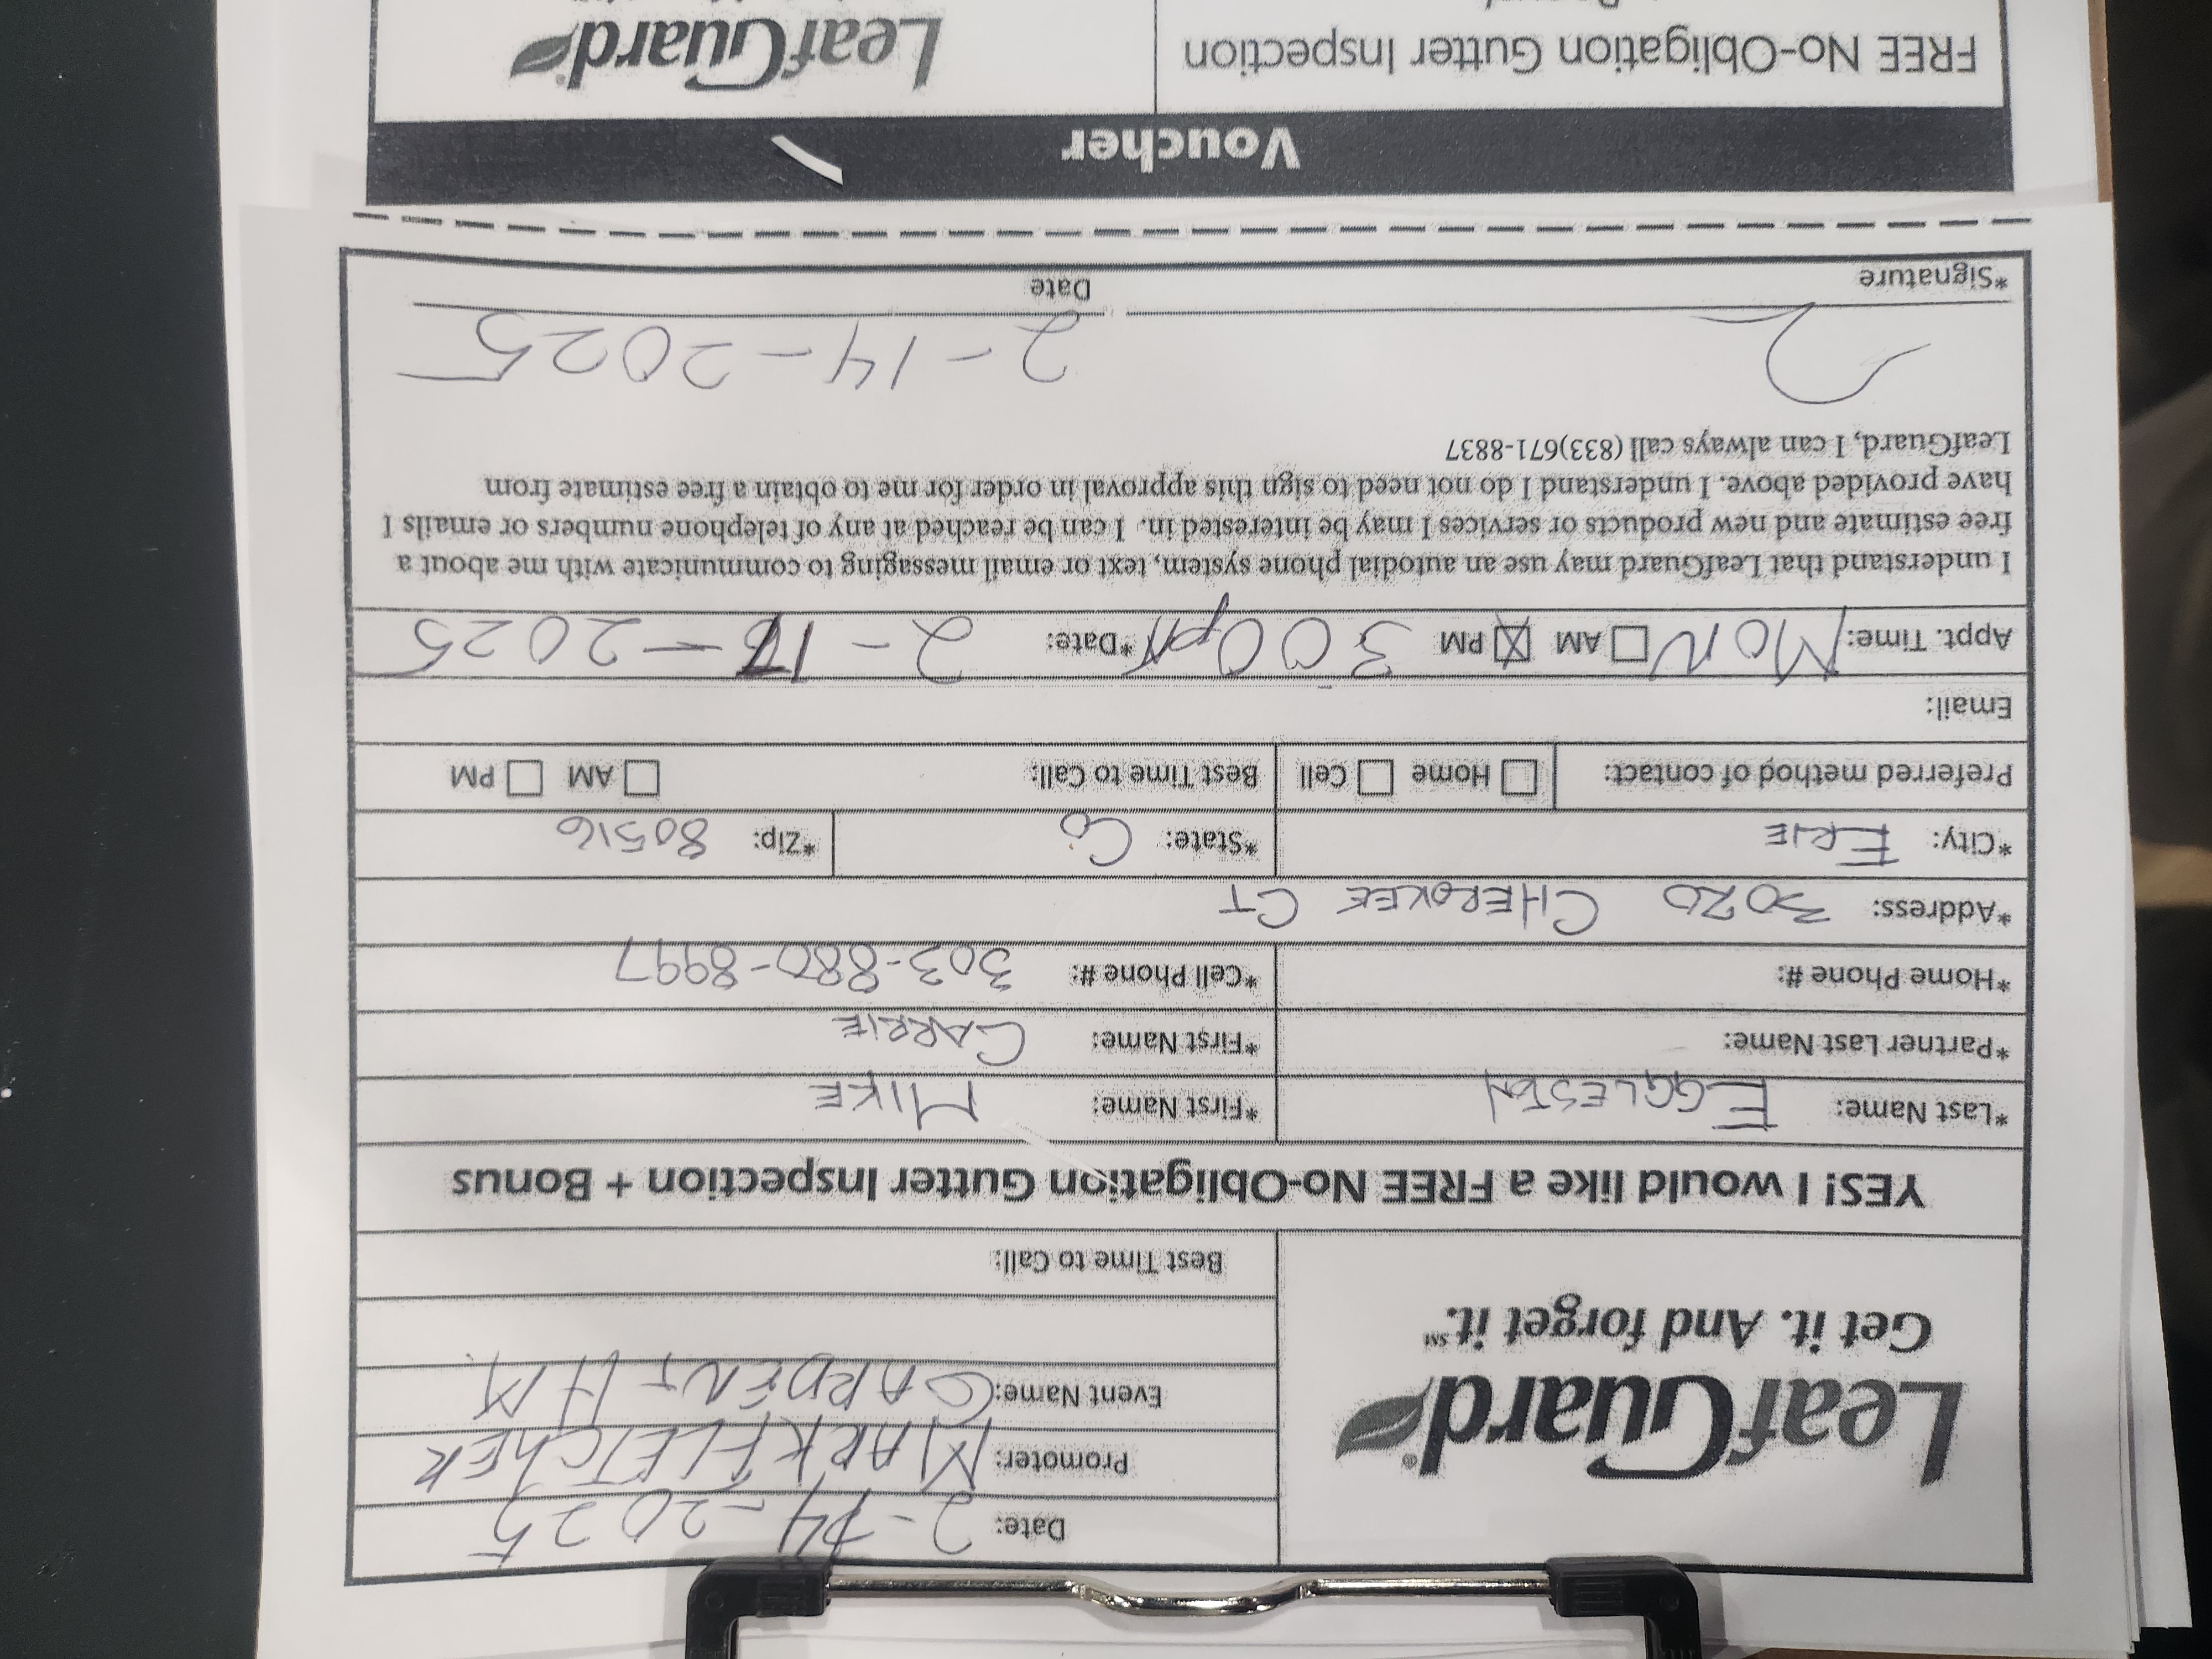 LeafGuard®
Get it. And forget it.℠
Date: 2-14-2025
Promoter: MARK FLETCHER
Event Name: GARDENT HM
Best Time to Call:
YES! I would like a FREE No-Obligation Gutter Inspection + Bonus
*Last Name: EGGLESTON *First Name: MIKE
*Partner Last Name: *First Name: CARRIE
*Home Phone #: *Cell Phone #: 303-880-8997
*Address: 3020 CHEROKEE CT
*City: ERIE *State: CO *Zip: 80516
Preferred method of contact: ☐ Home ☐ Cell Best Time to Call: ☐ AM ☐ PM
Email:
Appt. Time: MON ☐ AM ☒ PM 300pm *Date: 2- -2025
I understand that LeafGuard may use an autodial phone system, text or email messaging to communicate with me about a
free estimate and new products or services I may be interested in. I can be reached at any of telephone numbers or emails I
have provided above. I understand I do not need to sign this approval in order for me to obtain a free estimate from
LeafGuard, I can always call (833)671-8837
2-14-2025
*Signature Date
Voucher
FREE No-Obligation Gutter Inspection
LeafGuard